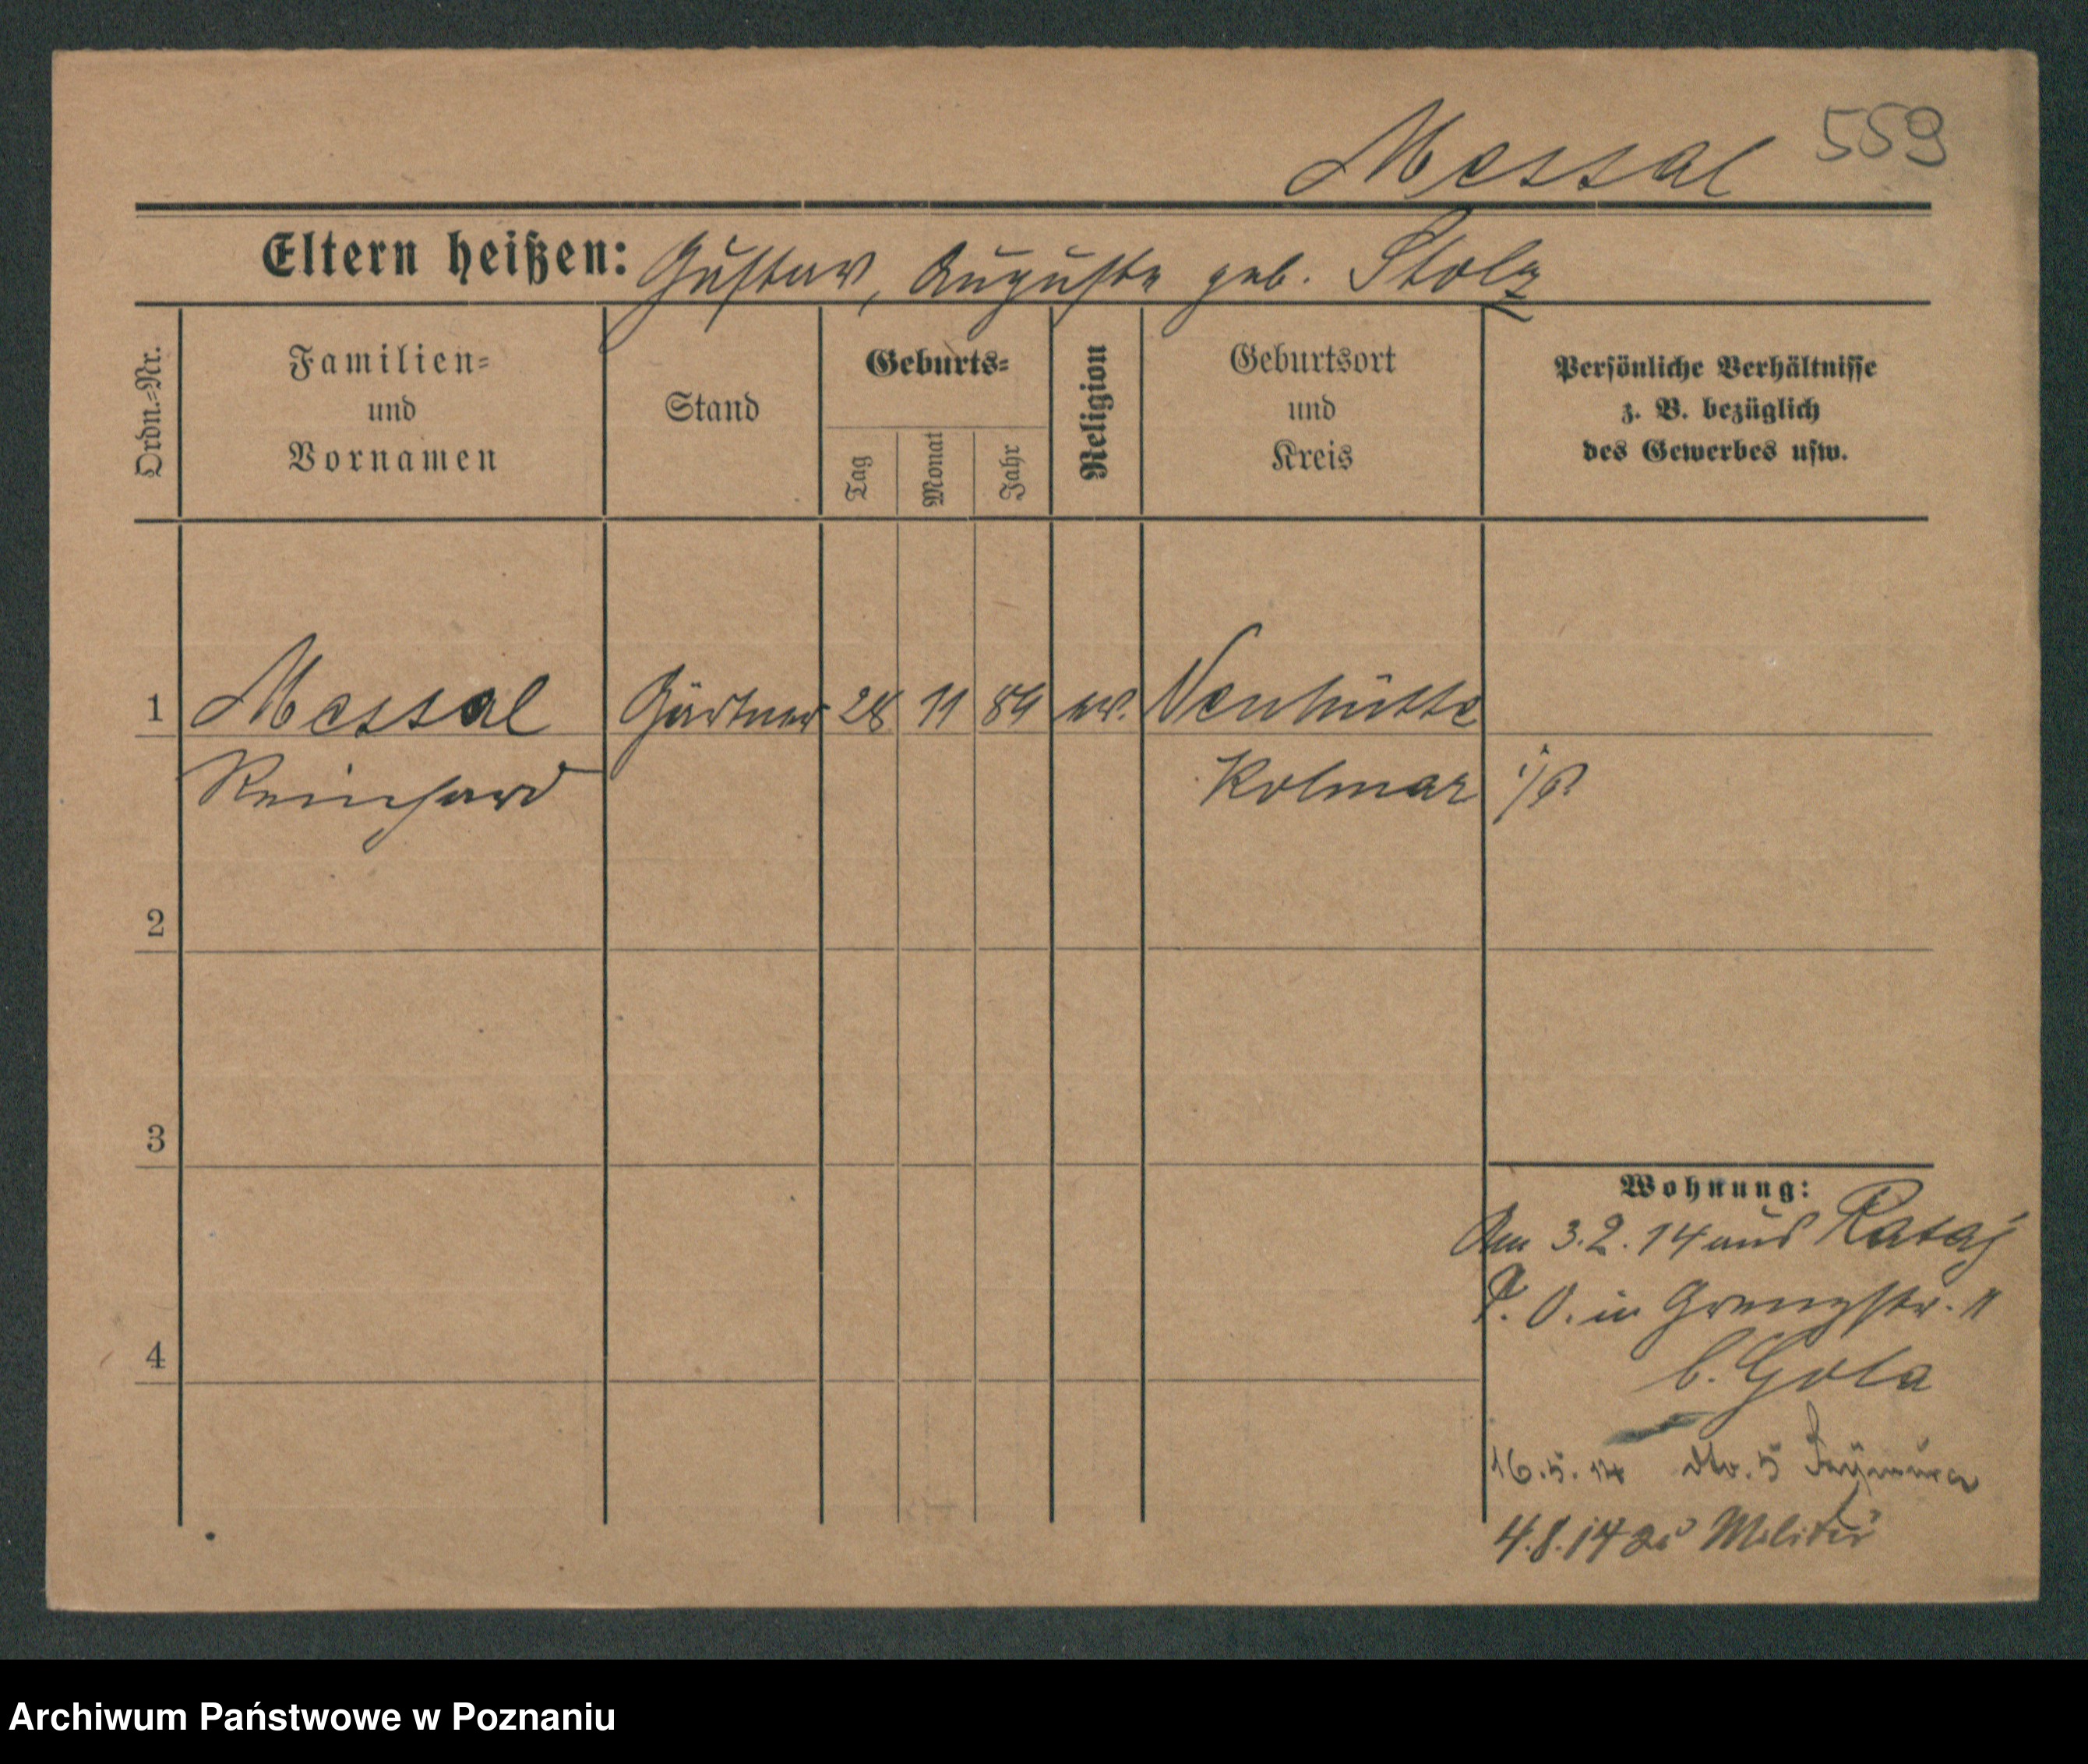 Messal 559
Eltern heißen: Gustav, Auguste geb. Stolz
Ordn.-Nr.
Familien-
und
Vornamen
Stand
Geburts-
Tag
Monat
Jahr
Religion
Geburtsort
und
Kreis
Persönliche Verhältnisse
z. B. bezüglich
des Gewerbes usw.
1 Messal Gärtner 28 11 89 ev. Neuhütte
Reinhard Kolmar i/P.
2
3
4
Wohnung:
Am 3.2.14 aus Rataj
P. O. in Grenzstr. 11
b. Gola
16.5.14 dto. 5
4.8.14 zu Militär
Archiwum Państwowe w Poznaniu